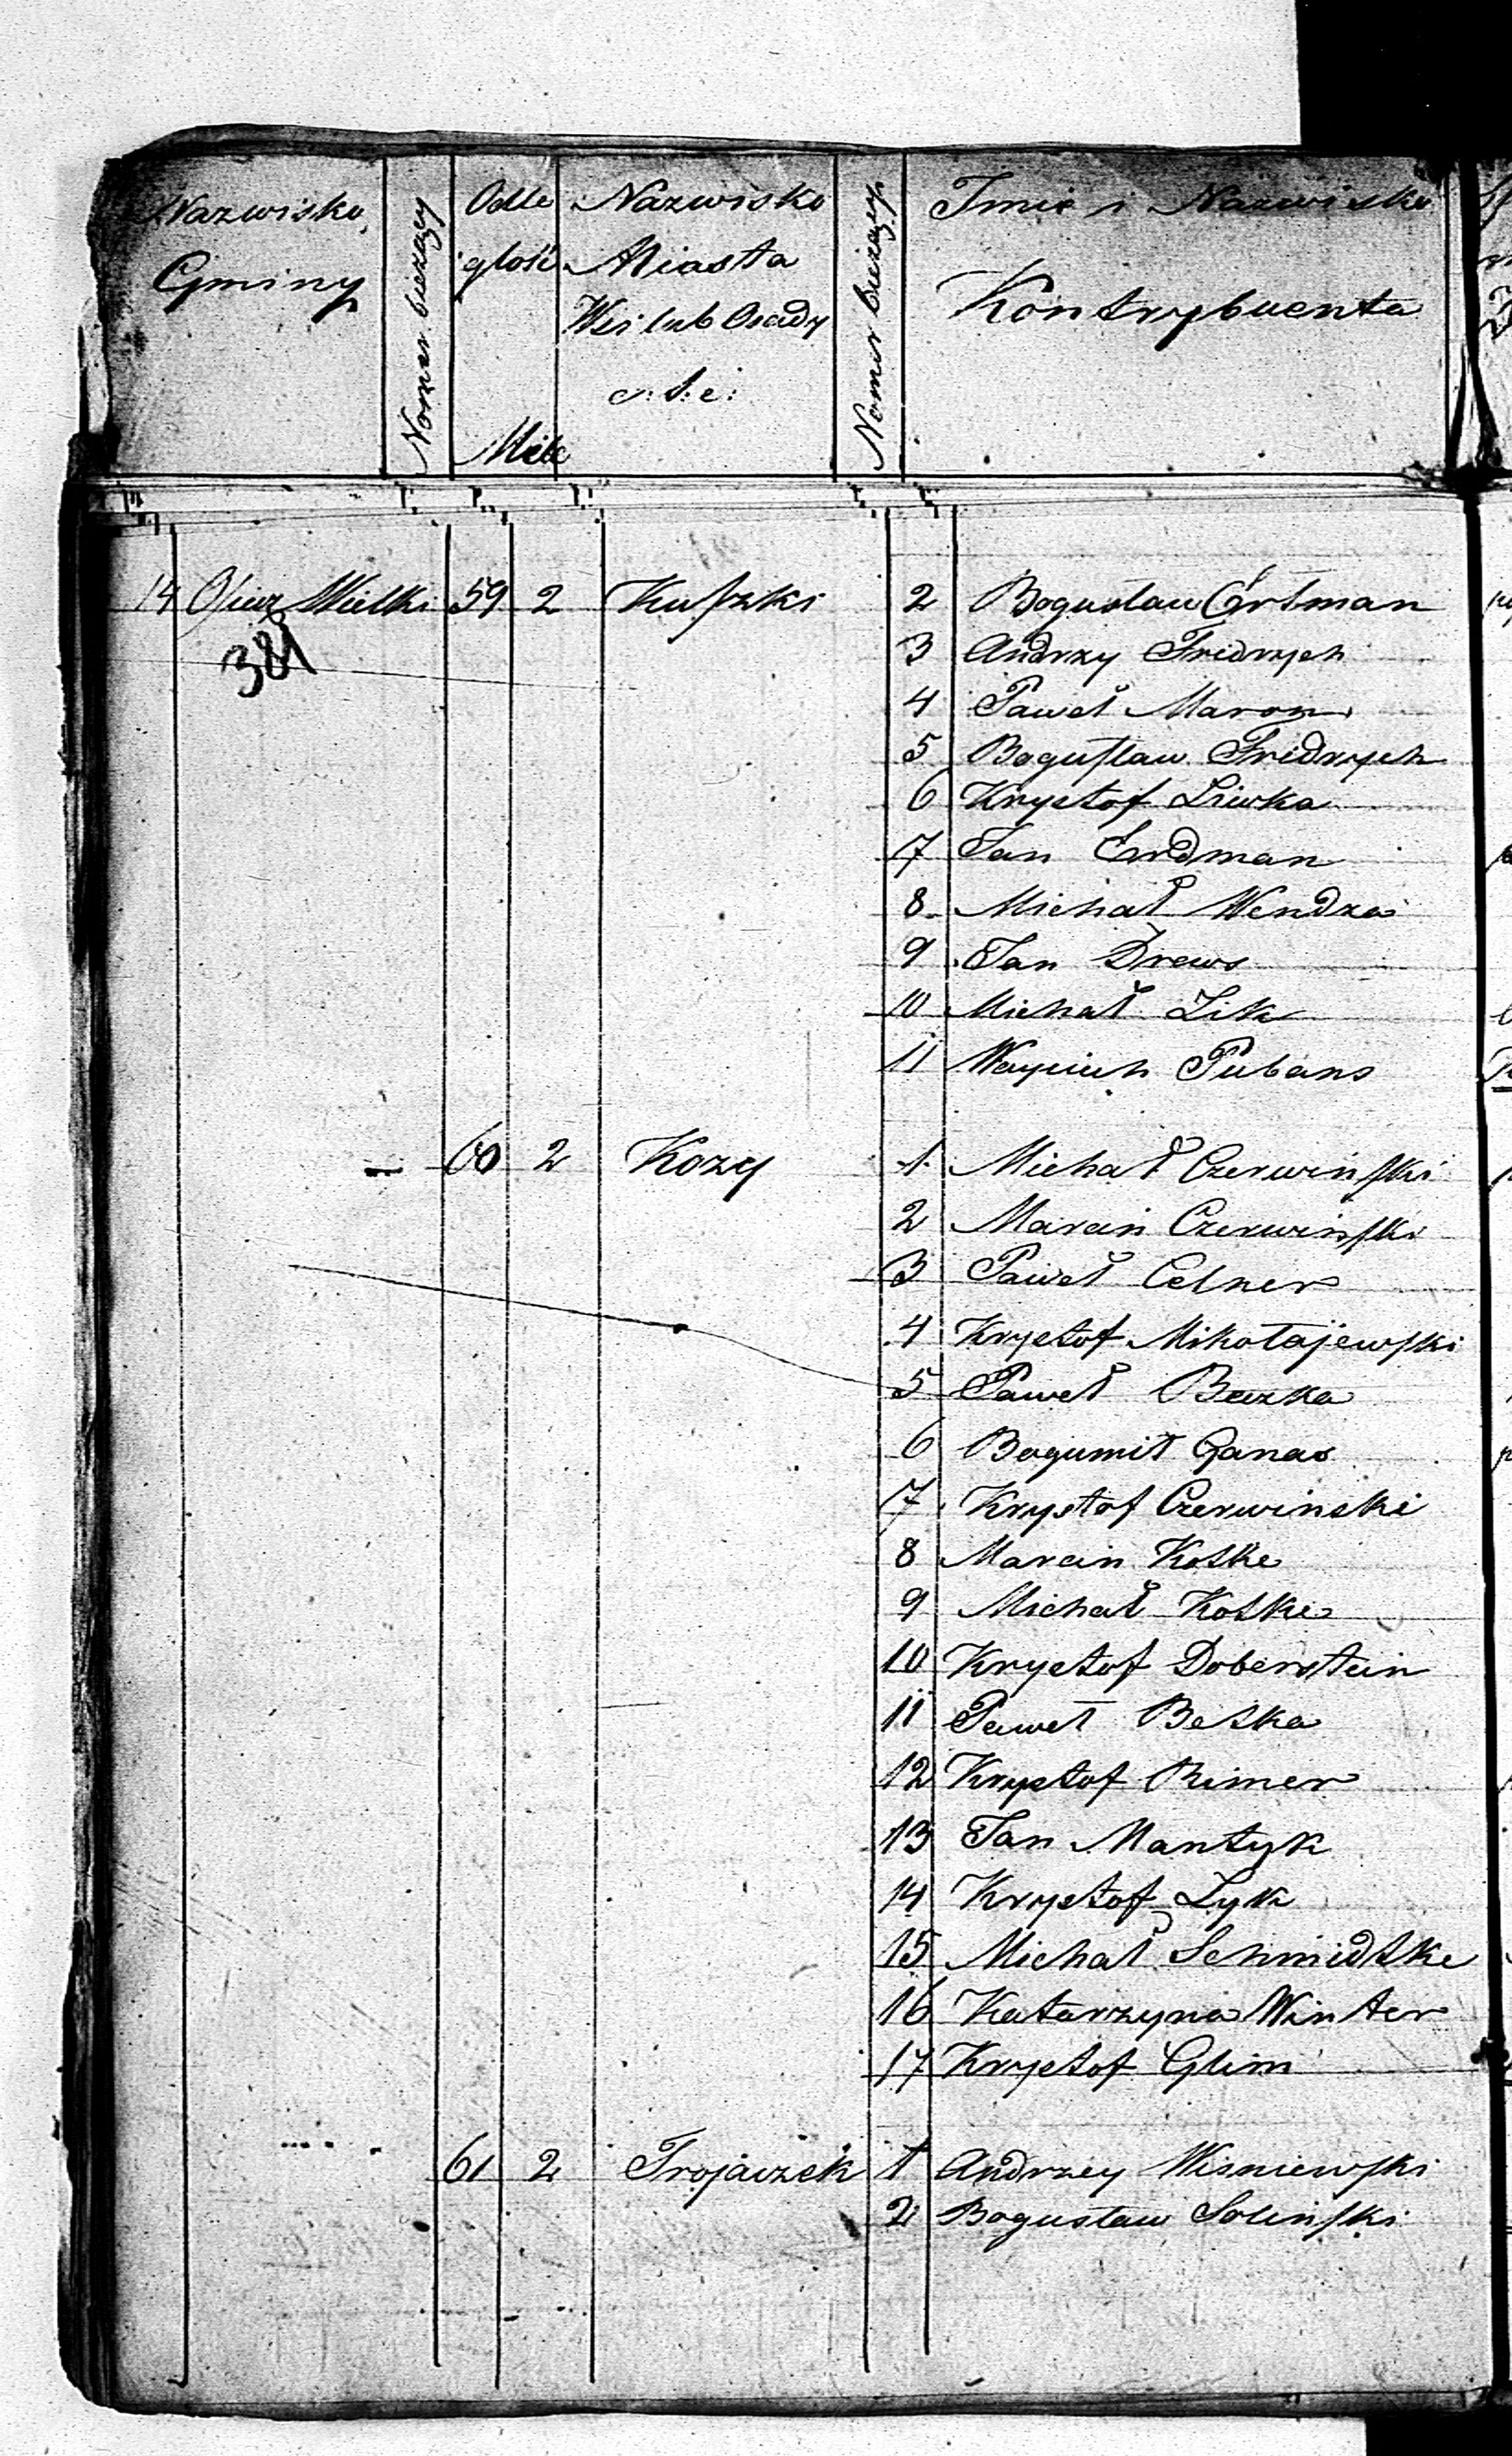 Nazwisko Gminy
Nomer bieżący
Odle głość Mile
Nazwisko Miasta Wsi lub Osady
Nomer bieżący
Imie i Nazwisko Kontrybuenta
14 Osiek Wielki 59 2 Kuszki 2 Bogusław Ertman
381
3 Andrzy Fridrych
4 Paweł Maron
5 Bogusław Fridrych
6 Krystof Liwka
7 Jan Erdman
8 Michał Wendza
9 Jan Drews
10 Michał Lik
11 Woyciech Pubans
60 2 Kozy 1 Michał Czerwinski
2 Marcin Czerwinski
3 Paweł Celner
4 Krystof Mikołajewski
5 Paweł Beczka
6 Bogumił Ganas
7 Krystof Czerwinski
8 Marcin Kotke
9 Michał Kotke
10 Krystof Doberstein
11 Paweł Betka
12 Krystof Rimer
13 Jan Mantyk
14 Krystof Lyk
15 Michał Schmidtke
16 Katarzyna Winter
17 Krystof Glim
61 2 Trojaczek 1 Andrzey Wisniewski
2 Bogusław Solinski